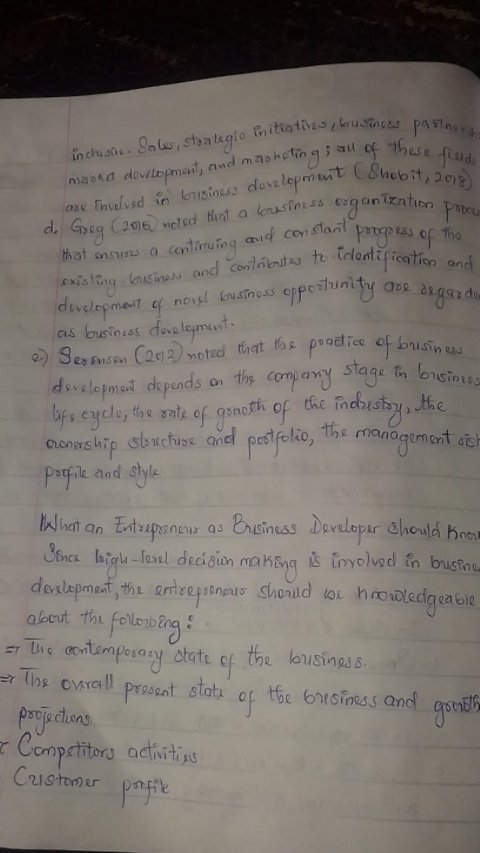 inclusive. Sales, strategic initiatives, business partners
market development, and marketing; all of these fields
are involved in business development (Shobit, 2018)
d. Greg (2015) noted that a business organization process
that ensures a continuing and constant progress of the
existing business and contributes to identification and
development of novel business opportunity are regarded
as business development.
e) Sorensen (2012) noted that the practice of business
development depends on the company stage in business
life cycle, the rate of growth of the industry, the
ownership structure and portfolio, the management
profile and style.
What an Entrepreneur as Business Developer Should Know
Since high-level decision making is involved in busine
development, the entrepreneur should be knowledgeable
about the following:
⇒ The contemporary state of the business.
⇒ The overall present state of the business and growth
projections.
Competitors activities.
Customer profile